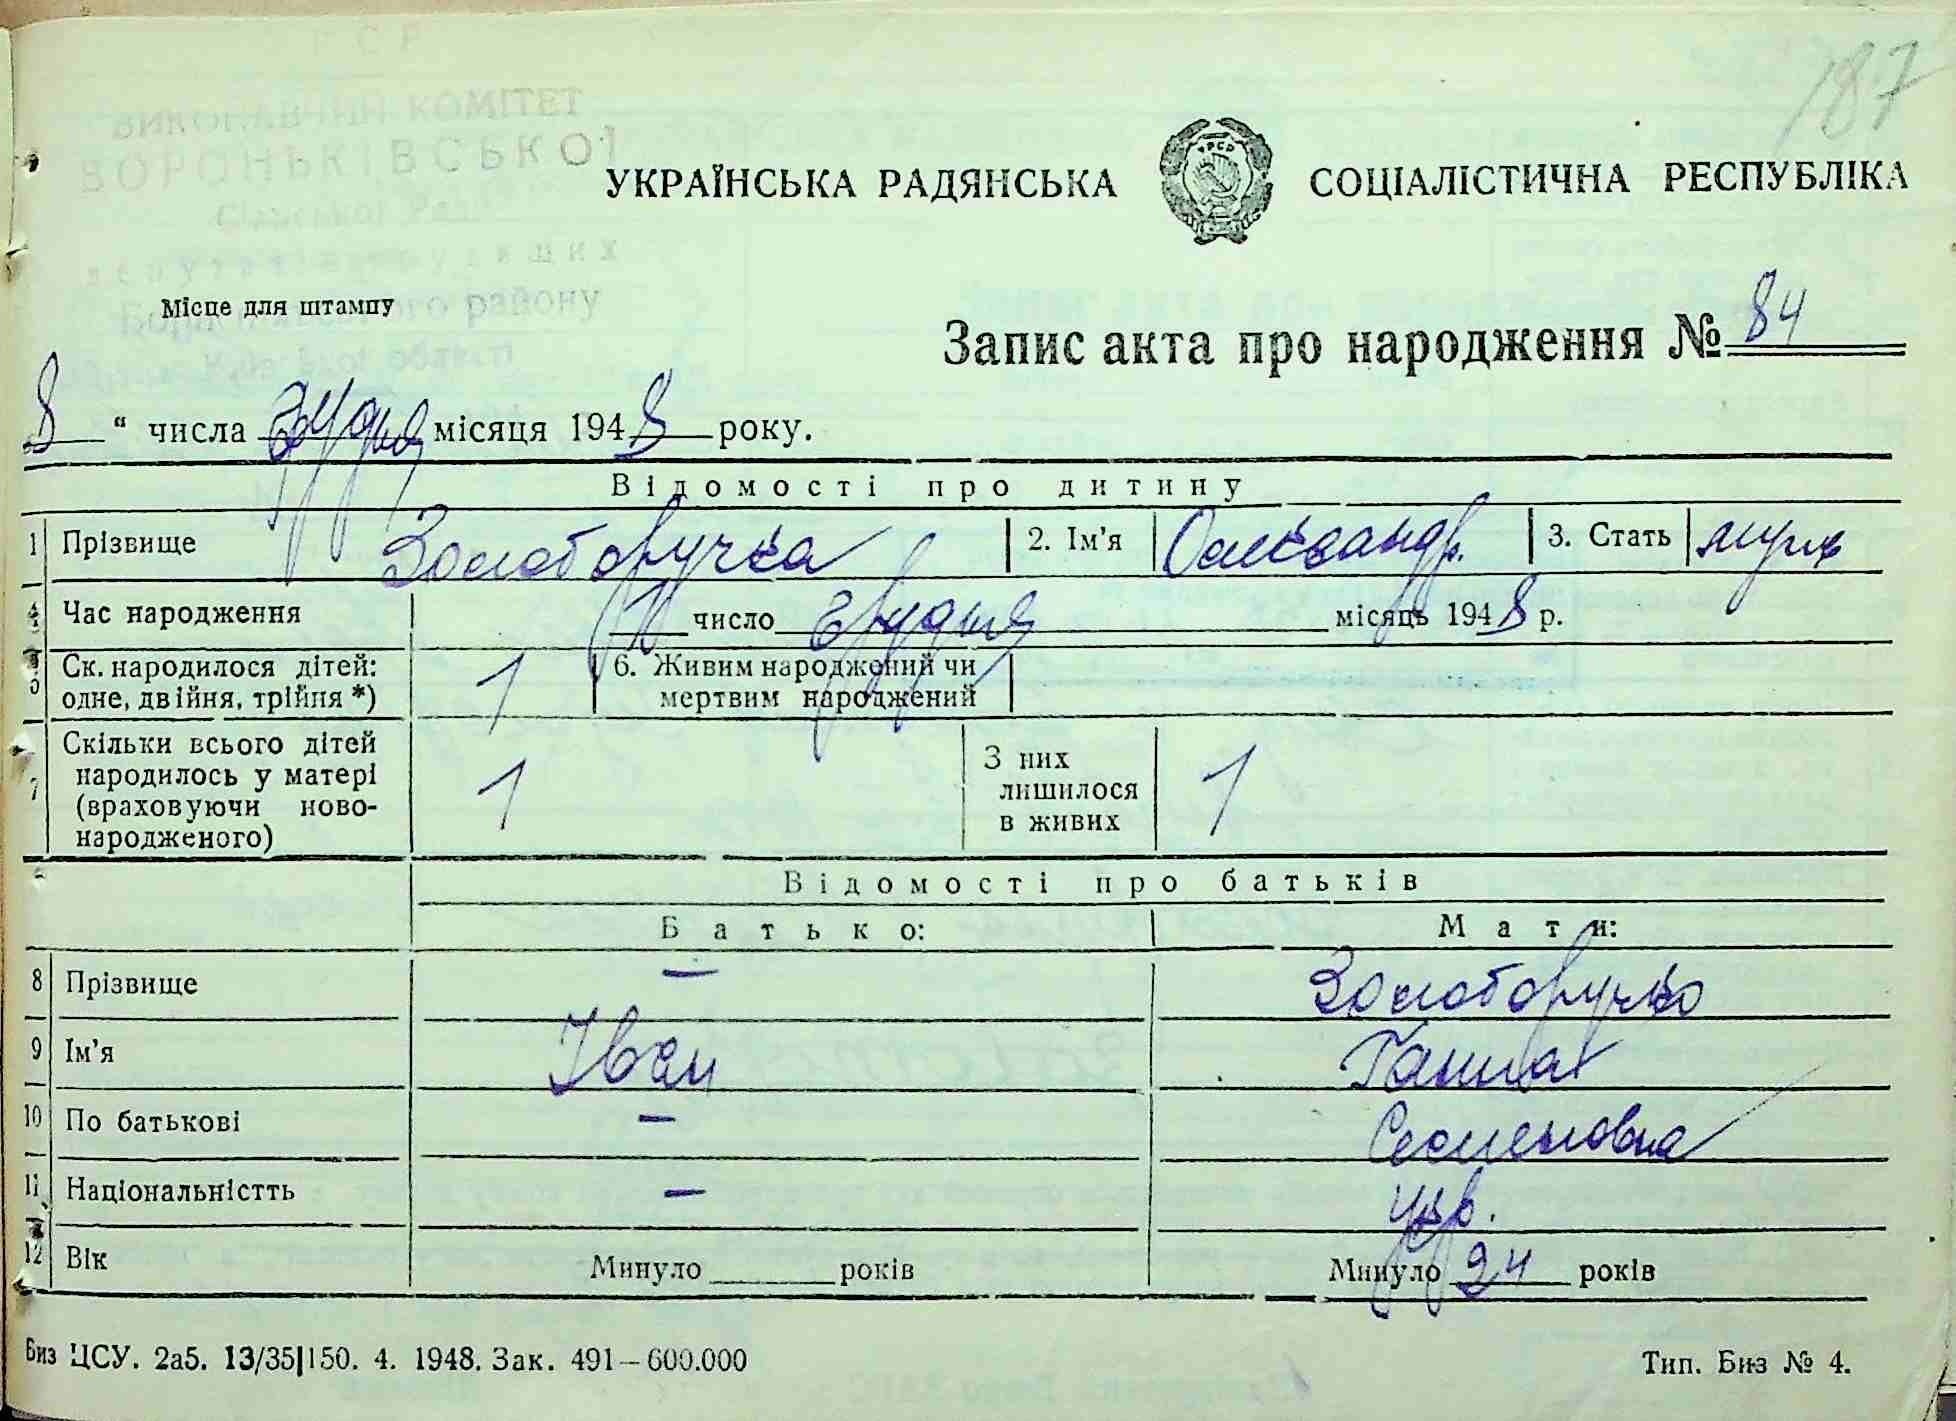 187
ВИКОНАВЧИЙ КОМІТЕТ
ВОРОНЬКІВСЬКОЇ
Сільської Ради
Бориспільського району
Київської області
УКРАЇНСЬКА РАДЯНСЬКА СОЦІАЛІСТИЧНА РЕСПУБЛІКА
Місце для штампу
Запис акта про народження № 84
8 “ числа грудня місяця 1948 року.
Відомості про дитину
1 Прізвище Золоторучка 2. Ім’я Олександр. 3. Стать муж
4 Час народження число грудня місяць 1948 р.
5 Ск. народилося дітей: одне, двійня, трійня *) 1 6. Живим народжений чи мертвим народжений
7 Скільки всього дітей народилось у матері (враховуючи новонародженого) 1 З них лишилося в живих 1
Відомості про батьків
Батько: Мати:
8 Прізвище — Золоторучко
9 Ім’я Іван Ганна
10 По батькові — Семеновна
11 Національністть — укр.
12 Вік Минуло років Минуло 24 років
Биз ЦСУ. 2а5. 13/35|150. 4. 1948. Зак. 491—600.000 Тип. Биз № 4.